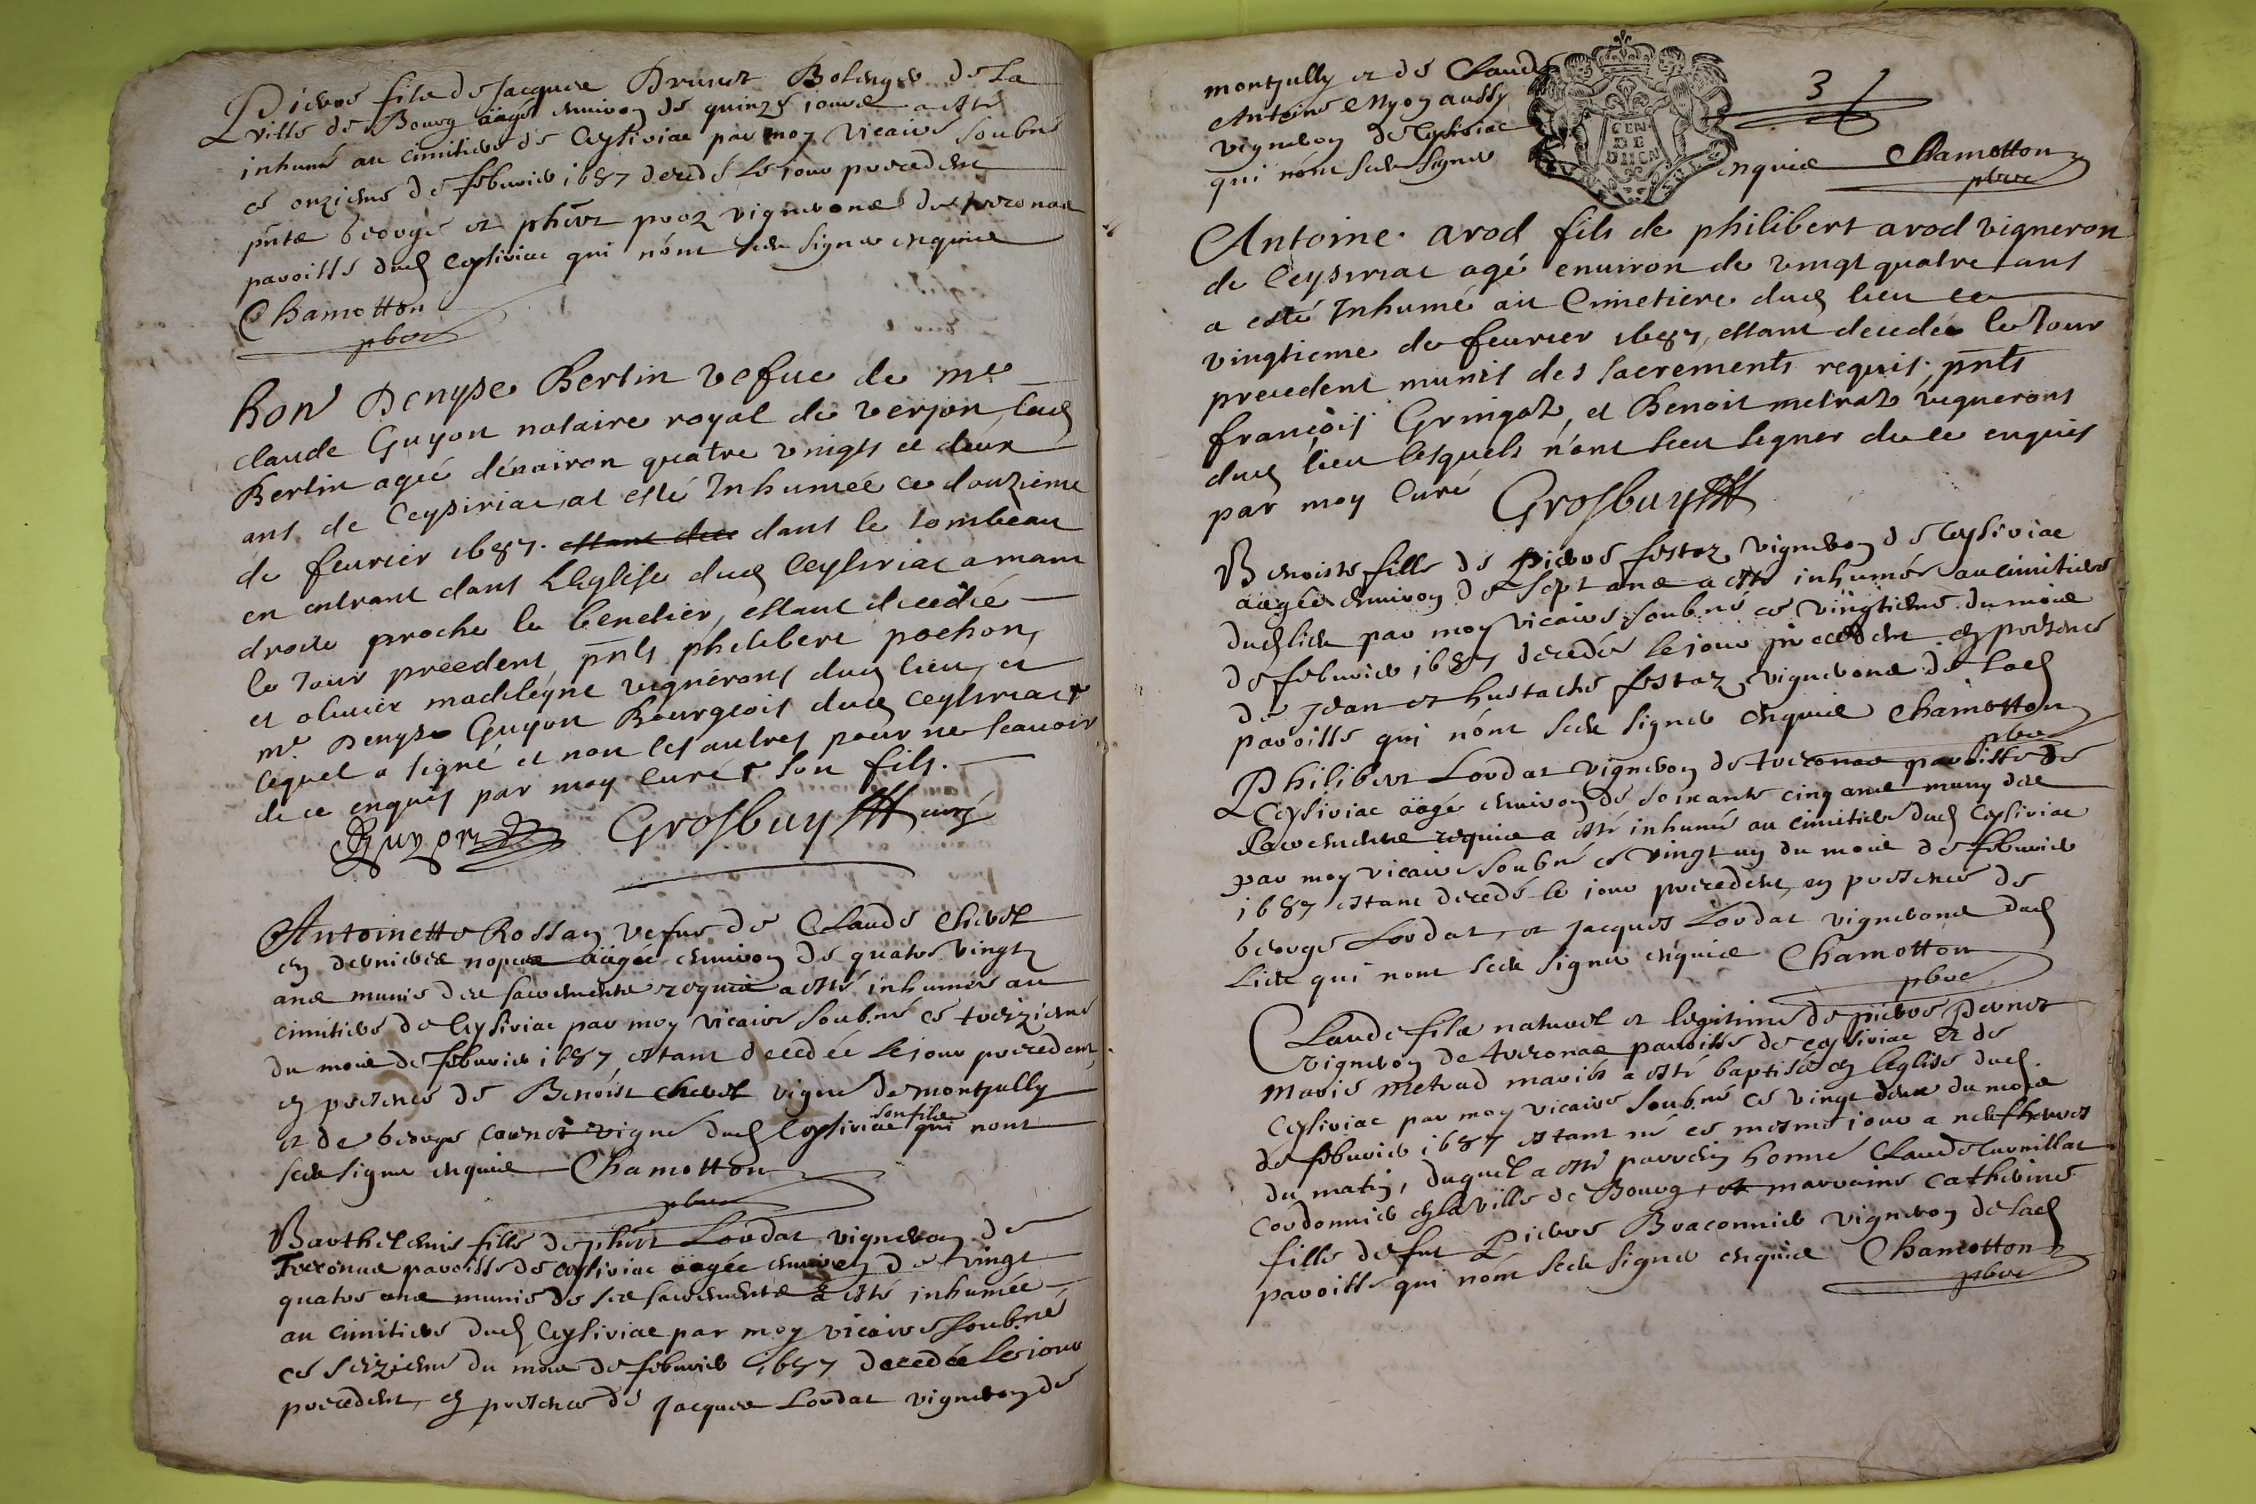 Pierre fils de Jacques Brunet Bolenger de la
ville de Bourg äagé enuiron de quinze iours a esté
inhumé au cimitiere de Ceyssiriac par moy vicaire soubné
ce onzieme de feburier 1687 decedé le iour precedent
pntz George et phert vignerons de
paroisse dud Ceyssiriac qui nónt sceu signer enquis
Chamotton
pbre
hon Denyse Bertin vefue de me
claude Guyon notaire royal de verjon, lad
Bertin agéé dénuiron quatre vingts et deux
ans de Ceysiriac at esté Inhumée ce douzieme
de feurier 1687. dans le tombeau
en entrant dans LEglise dud Ceysiriac a main
droite proche le benetier, estant decedée
le Jour precedent, pnts philibert pochon,
et oliuier madilegne vignerons dud lieu, et
me Denyse Guyon Bourgeois dud Ceysiriac +
lequel a signé et non les autres pour ne scauoir
de ce enquis par moy Curé + son fils.
Guyon Grosbuy curé
Antoinette Rossan vefue de Claude Chevet
en dernieres nopces äagée enuiron de quatre vingt
ans munie des sacrements requis a esté inhumée au
cimitiere de Ceysiriac par moy vicaire soubné ce treizieme
du mois de feburier 1687, estant decedée le iour precedent,
en presence de Benoist Chevet vigne de montjully
et de George vigne dud Ceysiriac son fils qui nont
sceu signer enquis Chamotton
pbre
Barthelemie fille de phert Lordat vigneron de
Treconas paroisse de Ceysiriac äagée enuiron de vingt
quatre ans munie de ses sacrements a esté inhumée
au cimitiere dud Ceysiriac par moy vicaire soubné
ce seizieme du mois de feburier 1687 decedée le iour
precedent, en presence de Jacques Lordat vigneron de
montjully et de Claude
Antoine aussy
vigneron de Ceysiriac
qui nónt sceu signer
enquis Chamotton
pbre
3
GEN
DE
DIION
Antoine arod fils de philibert arod vigneron
de Ceysiriac agé enuiron de vingt quatre ans
a esté Inhumé au Cimetiere dud lieu ce
vingtieme de feurier 1687, estant decedé le Jour
precedent munis des sacrements requis; pnts
françois Gringoz, et Benoit metraz vignerons
dud lieu lesquels nónt sceu signer de ce enquis
par moy Curé Grosbuy
Benoiste fille de Pierre festaz vigneron de Ceysiriac
äagée enuiron de sept ans a esté inhumée au cimitiere
dud lieu par moy vicaire soubné ce vingtieme du mois
de feburier 1687 decedée le iour precedent en presence
de Jean et hustache festaz vignerons de lad
paroisse qui nónt sceu signer enquis Chamotton
pbre
Philibert Lordat vigneron de treconas paroisse de
Ceysiriac äagé enuiron de soixante cinq ans muny des
Sacrements requis a esté inhumé au cimitiere dud Ceysiriac
par moy vicaire soubné ce vingt un du mois de feburier
1687 estant decedé le iour precedent, en presence de
George Lordat, et Jacques Lordat vignerons dud
lieu qui nont sceu signer enquis Chamotton
pbre
Claude fils naturel et legitime de pierre Pernet
vigneron de treconas paroisse de ceysiriac et de
Marie Metrad mariés a esté baptisé en leglise dud
Ceysiriac par moy vicaire soubné ce vingt deux du mois
de feburier 1687 estant né ce mesme iour a neuf heures
du matin, duquel a esté parrein honné Claude Curnillat
cordonnier en la ville de Bourg, et marraine Catherine
fille de fut Pierre Braconnier vigneron de lad
paroisse qui nónt sceu signer enquis Chamotton
pbre